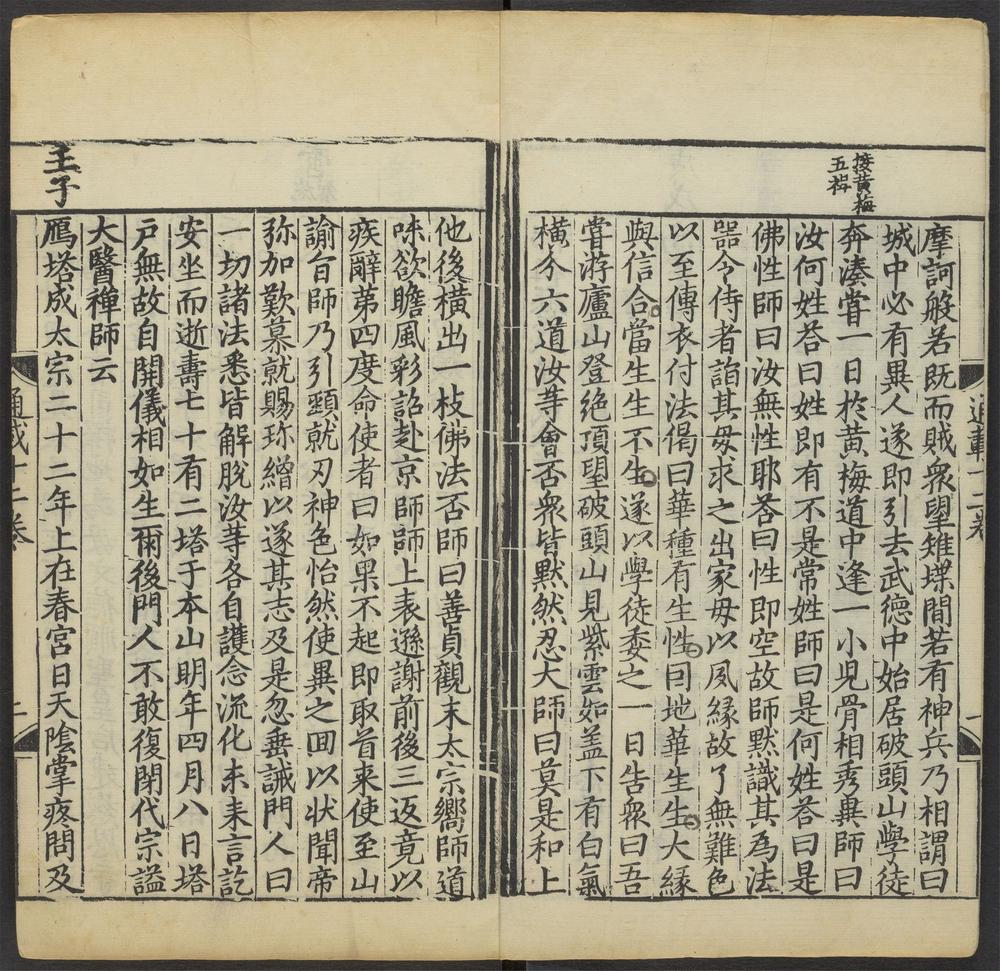 接黃梅
五祖
摩訶般若既而賊衆望雉堞間若有神兵乃相謂曰
城中必有異人遂即引去武德中始居破頭山學徒
奔湊嘗一日於黃梅道中逢一小兒骨相秀異師曰
汝何姓荅曰姓即有不是常姓師曰是何姓荅曰是
佛性師曰汝無性耶荅曰性即空故師默識其爲法
噐令侍者詣其毋求之出家毋以夙緣故了無難色
以至傳衣付法偈曰華種有生性因地華生生大緣
與信合當生生不生遂以學徒委之一日告衆曰吾
嘗游廬山登絶頂望破頭山見紫雲如盖下有白氣
橫分六道汝等會否衆皆默然忍大師曰莫是和上
他後橫出一枝佛法否師曰善貞觀末太宗嚮師道
味欲瞻風彩詔赴京師師上表遜謝前後三返竟以
疾辭苐四度命使者曰如果不起即取首来使至山
諭旨師乃引頸就刃神色怡然使異之回以状聞帝
弥加歎慕就賜珎繒以遂其志及是忽垂誡門人曰
一切諸法悉皆解脫汝等各自護念流化未来言訖
安坐而逝壽七十有二塔于本山明年四月八日塔
戶無故自開儀相如生爾後門人不敢復閉代宗謚
大醫禪師云
王子
鴈塔成太宗二十二年上在春宮日天陰掌疼問及
通載十二卷
一
通載十二卷
二